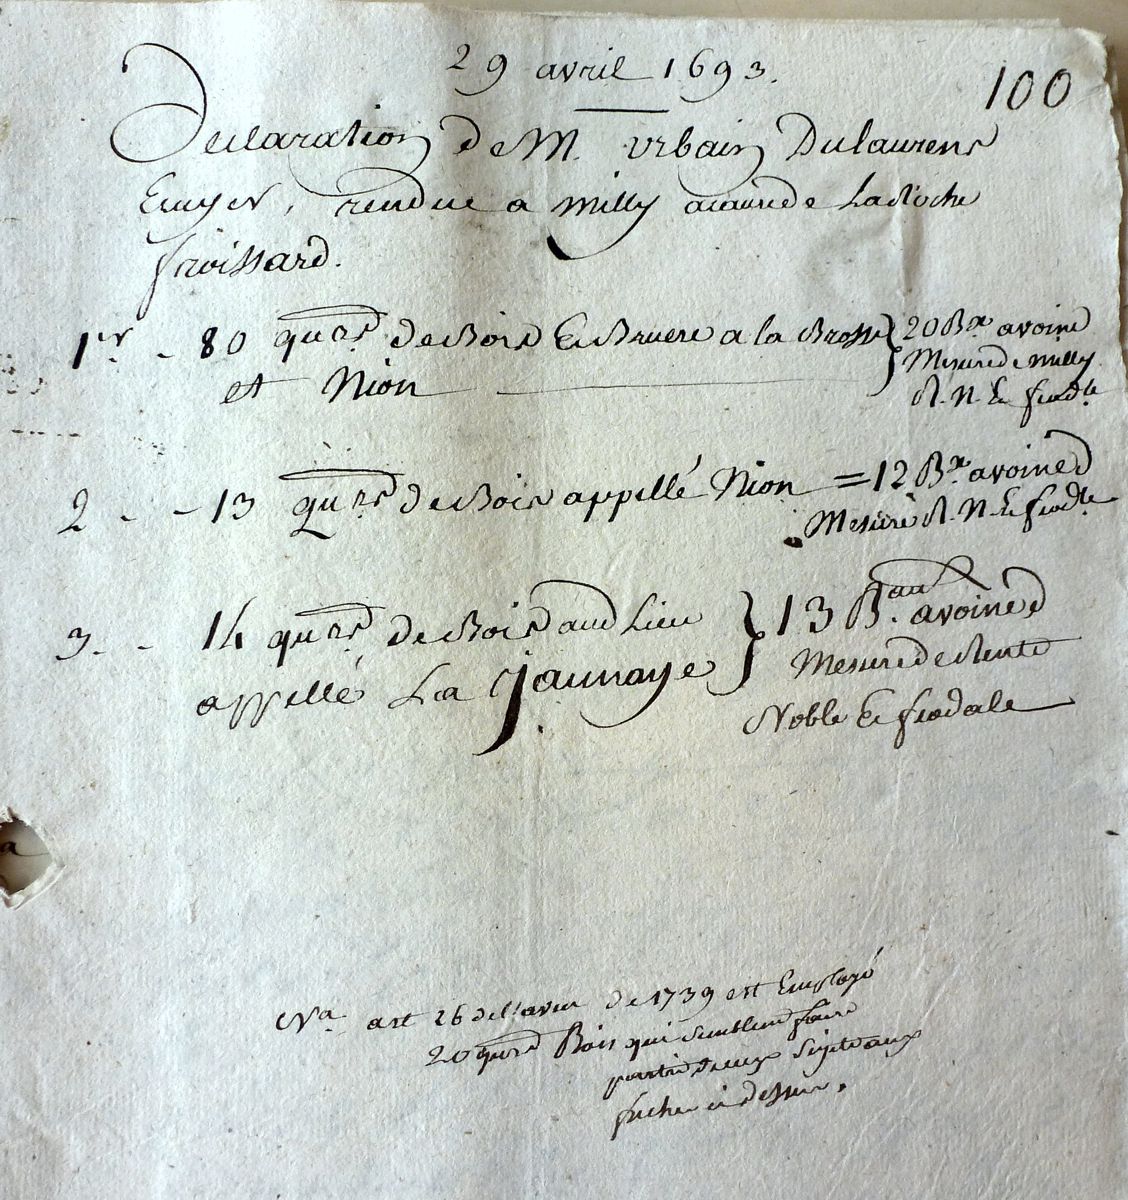 29 avril 1693.
100
Declaration de M. Urbain Dulaurens
Ecuyer, rendue a Milly acause de La Roche
froissard.
1er - 80 quers de Bois & Bruere a la Brosse } 20 Bx avoine
et Nion Mesure de Milly
R. N. & feodle
2 - - 13 quers de Bois appellé Nion = 12 Bx avoine d
Mesure R. N. & feodle
3 - - 14 quers de Bois aud Lieu } 13 Baux avoine d
appellé La Jaunaye Mesure de Rente
Noble & feodale
Na art 26 de l'aveu de 1739 est Employé
20 quers Bois qui semblent faire
partie de ceux Sujets aux
ci dessus.